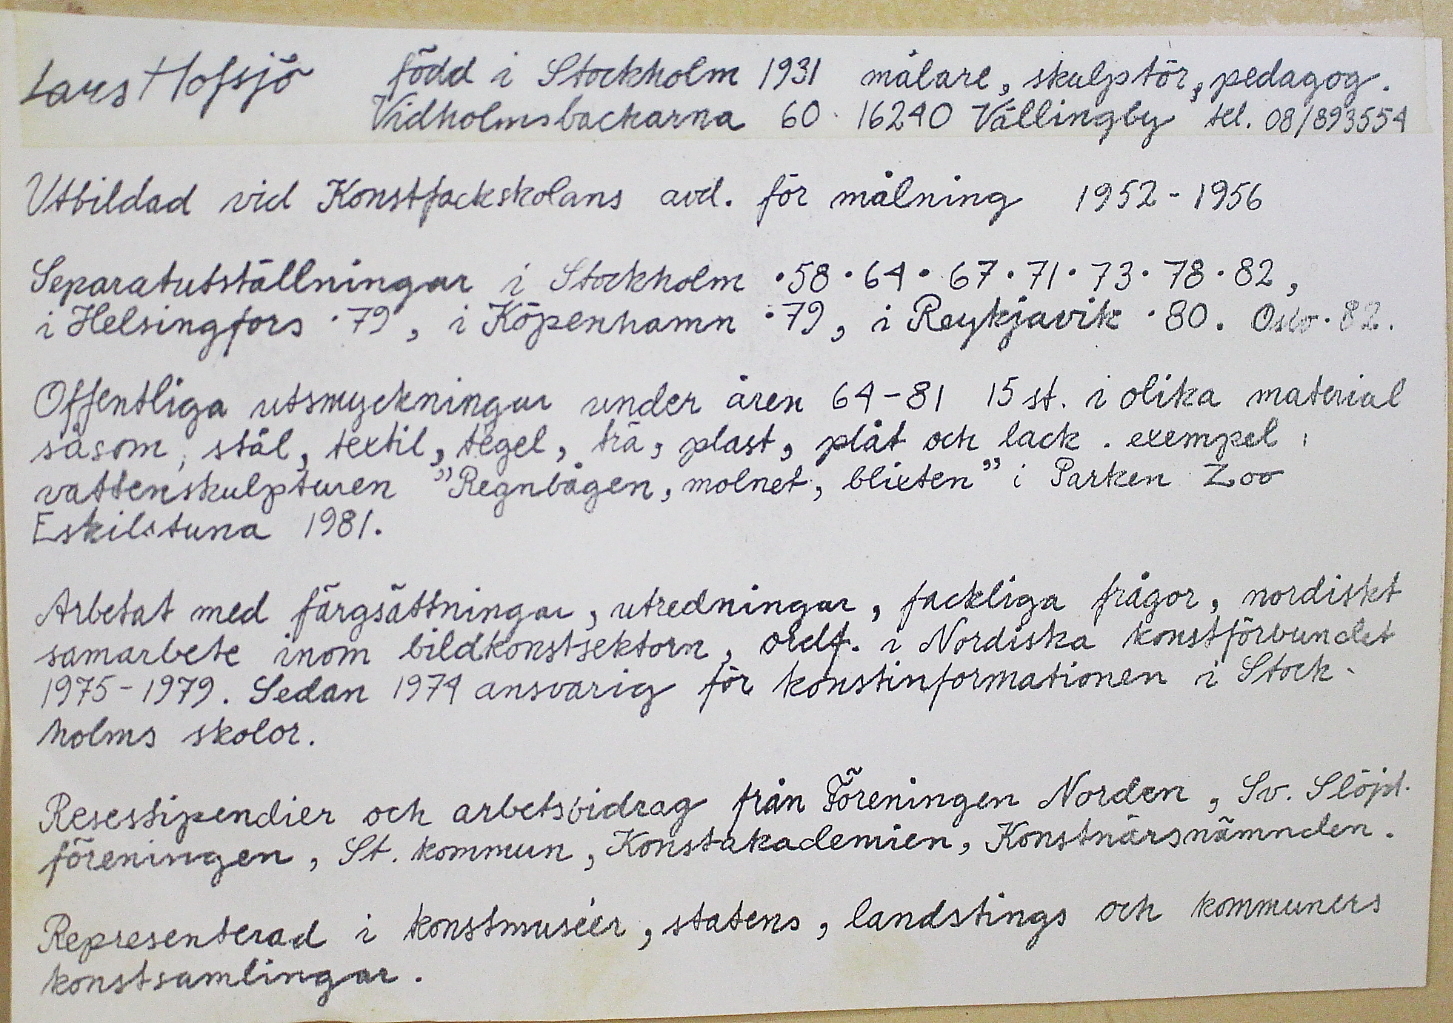 Lars Hofsjö född i Stockholm 1931 målare, skulptör, pedagog.
Vidholmsbackarna 60. 16240 Vällingby tel. 08/893554
Utbildad vid Konstfackskolans avd. för målning 1952-1956
Separatutställningar i Stockholm •58•64•67•71•73•78•82,
i Helsingfors •79, i Köpenhamn •79, i Reykjavik •80. Oslo•82.
Offentliga utsmyckningar under åren 64-81 15 st. i olika material
såsom, stål, textil, tegel, trä, plast, plåt och lack. exempel:
vattenskulpturen "Regnbågen, molnet, blixten" i Parken Zoo
Eskilstuna 1981.
Arbetat med färgsättningar, utredningar, fackliga frågor, nordiskt
samarbete inom bildkonstsektorn, ordf. i Nordiska konstförbundet
1975-1979. Sedan 1974 ansvarig för konstinformationen i Stock-
holms skolor.
Resestipendier och arbetsbidrag från Föreningen Norden, Sv. Slöjd.
föreningen, St. kommun, Konstakademien, Konstnärsnämnden.
Representerad i konstmuséer, statens, landstings och kommuners
konstsamlingar.